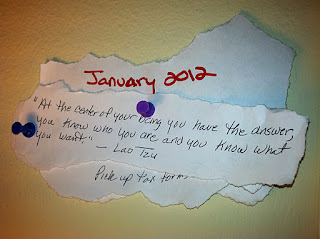 January 2012
"At the center of your being you have the answer,
you know who you are and you know what
you want." — Lao Tzu
Pick up tax forms